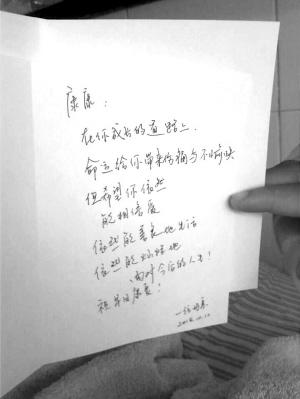 康康：
在你成长的道路上，
命运给你带来伤痛与不愉快
但希望你依然
能相信爱
依然能善良地生活
依然能灿烂地
面对今后的人生！
祝早日康复！
一位妈